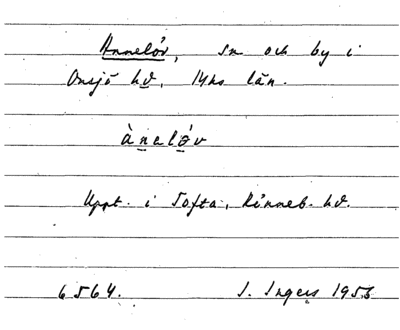 Annelöv, sn och by i
Onsjö hd, Mhs län.
ànalöv
Uppt. i Tofta, Rönneb. hd.
6564. I. Ingers 1955